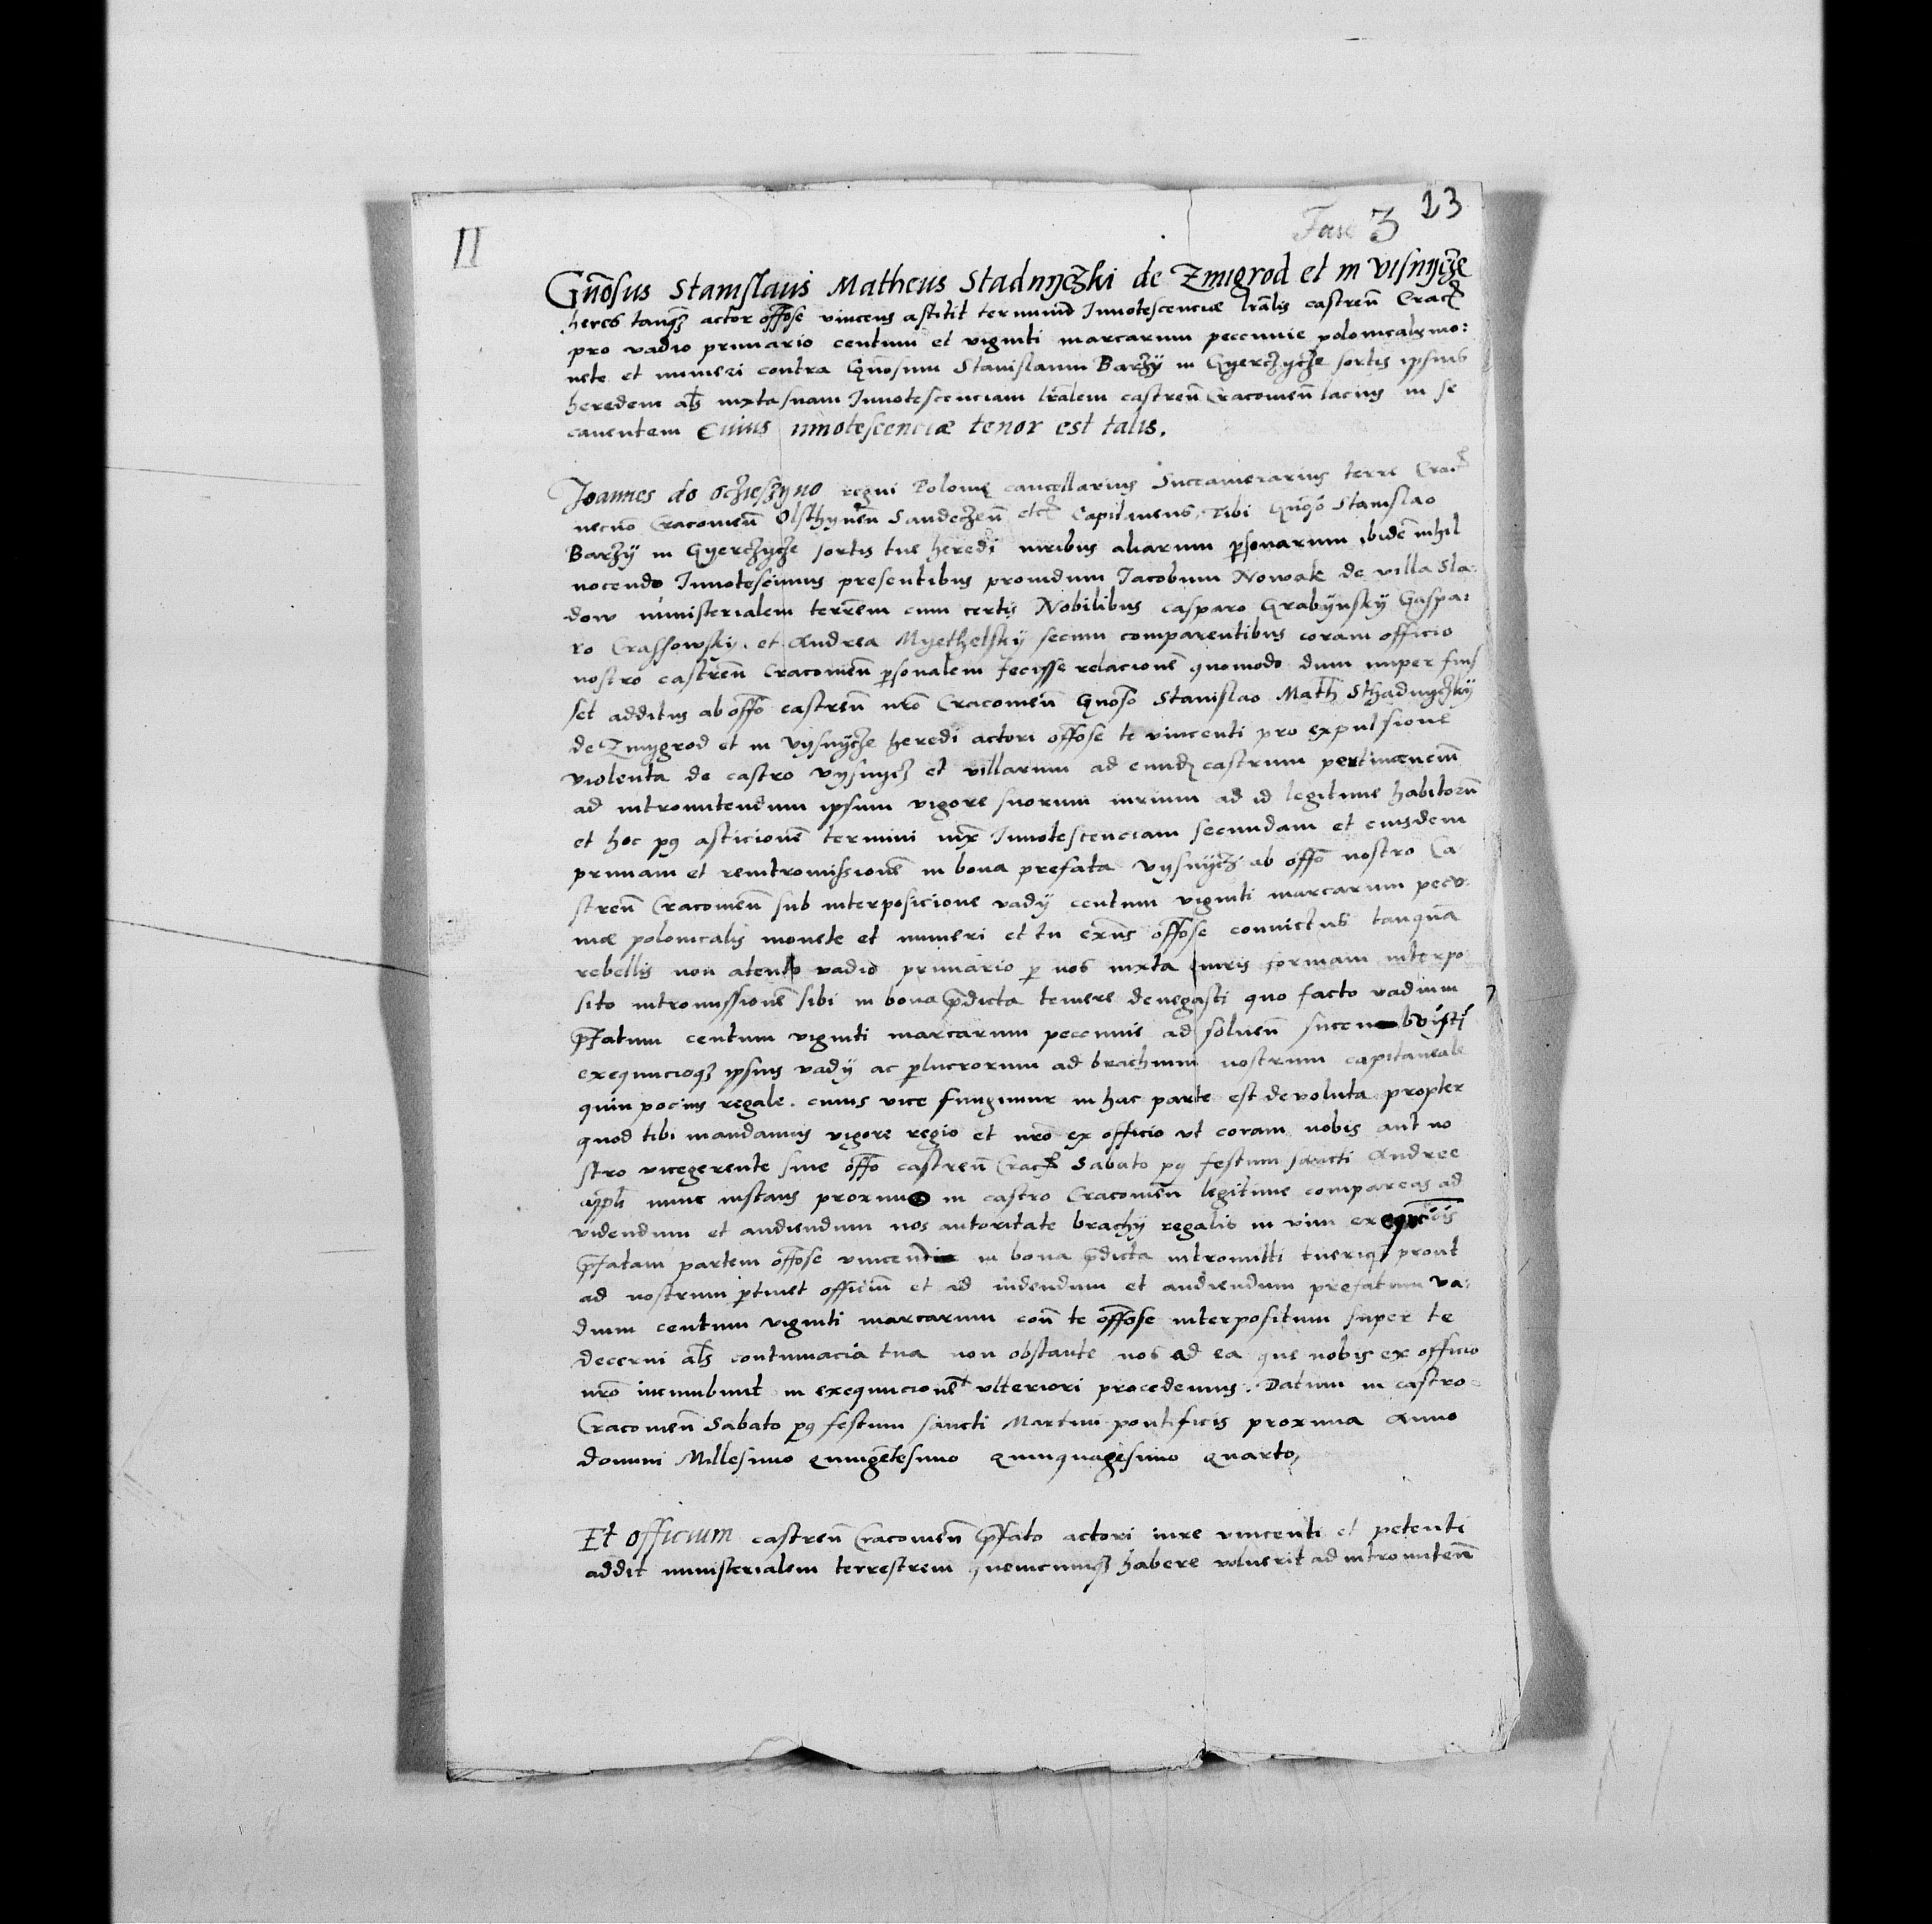 23
Fasc 3
II
Gn̄osus Stanislaus Matheus Stadnyczki de Zmigrod et in Visnycze
heres tanqȝ actor offose vincens astitit terminū Innotescenciæ lr̄alis castren̄ Crac
pro vadio primario centum et viginti marcarum peccunie polonicalis mo:
nete et numeri contra Gn̄osum Stanislaum Barzy in Gyerczycze sortis ipsius
heredem als iuxta suam Innotescenciam lr̄alem castren̄ Cracouien̄ lacius in se
canentem Cuius innotescenciæ tenor est talis.
Joannes de Oczieszyno regni Polonię cancellarius Succamerarius terre Crac
necno Cracouien̄ Olsthynen̄ Sandeczen̄ etc Capitaneus, Tibi Gn̄oso Stanislao
Barzy in Gyerczycze sortis tue heredi iuribus aliarum p̱sonarum ibidē nihil
nocendo Innotescimus presentibus prouidum Jacobum Nowak de villa Sla:
dow ministerialem terrēm cum certis Nobilibus casparo Grabynsky Gaspa:
ro Crassowsky. et Andrea Myethelsky secum comparentibus coram officio
nostro castren̄ Cracouien̄ p̱sonalem fecisse relacionē quomodo dum nuper fuis
set additus ab offō castren̄ nr̄o Cracouien̄ Gnoso Stanislao Math Sthadnyczky
de Zmygrod et in Vysnycze heredi actori offose te vincenti pro expulsione
violenta de castro Vysnycz et villarum ad eundȝ castrum pertinæncium
ad intromittendum ipsum vigore suorum iurium ad id legitime habitorū
et hoc pꝰ asticionē termini iux Innotescenciam secundam et eiusdem
primam et reintromissionē in bona prefata Vysnycz ab offō nostro Ca
stren̄ Cracouien̄ sub interposicione vady centum viginti marcarum pecu:
niæ polonicalis monete et numeri et tu exn̄s offose conuictus tanquā
rebellis non atento vadio primario p̱ nos iuxta iuris formam interpo
sito intromissionē sibi in bona p̄dicta temere denegasti quo facto vadium
p̄fatum centum viginti marcarum peccunie ad soluen̄ succubuisti
exequucioqȝ ipsius vady ac p̱lucrorum ad brachium nostrum capitaneale
quin pocius regale. cuius vice fungimur in hac parte est deuoluta propter
quod tibi mandamus vigore regio et nr̄o ex officio ut coram nobis aut no
stro vicegerente siue offō castren̄ Crac Sabato pꝰ festum sancti Andree
apl̄i nunc instans proximo in castro Cracouien̄ legitime compareas ad
videndum et audiendum nos autoritate brachy regalis in vim exequciois
p̄fatam partem offose vincentē in bona p̄dicta intromitti tueriqȝ prout
ad nostrum p̱tinet officiū et ad uidendum et audiendum prefatum va:
dium centum viginti marcarum con̄ te offose interpositum super te
decerni als contumacia tua non obstante nos ad ea que nobis ex officio
nr̄o incumbunt in exequucionē ulteriori procedemus. Datum in castro
Cracouien̄ Sabato pꝰ festum sancti Martini pontificis proxima Anno
domini Millesimo quingētesimo quinquagesimo quarto,
Et officium castren̄ Cracouien̄ p̄fato actori iure vincenti et petenti
addit ministerialem terrestrem quemcunqȝ habere voluerit ad intromitten̄